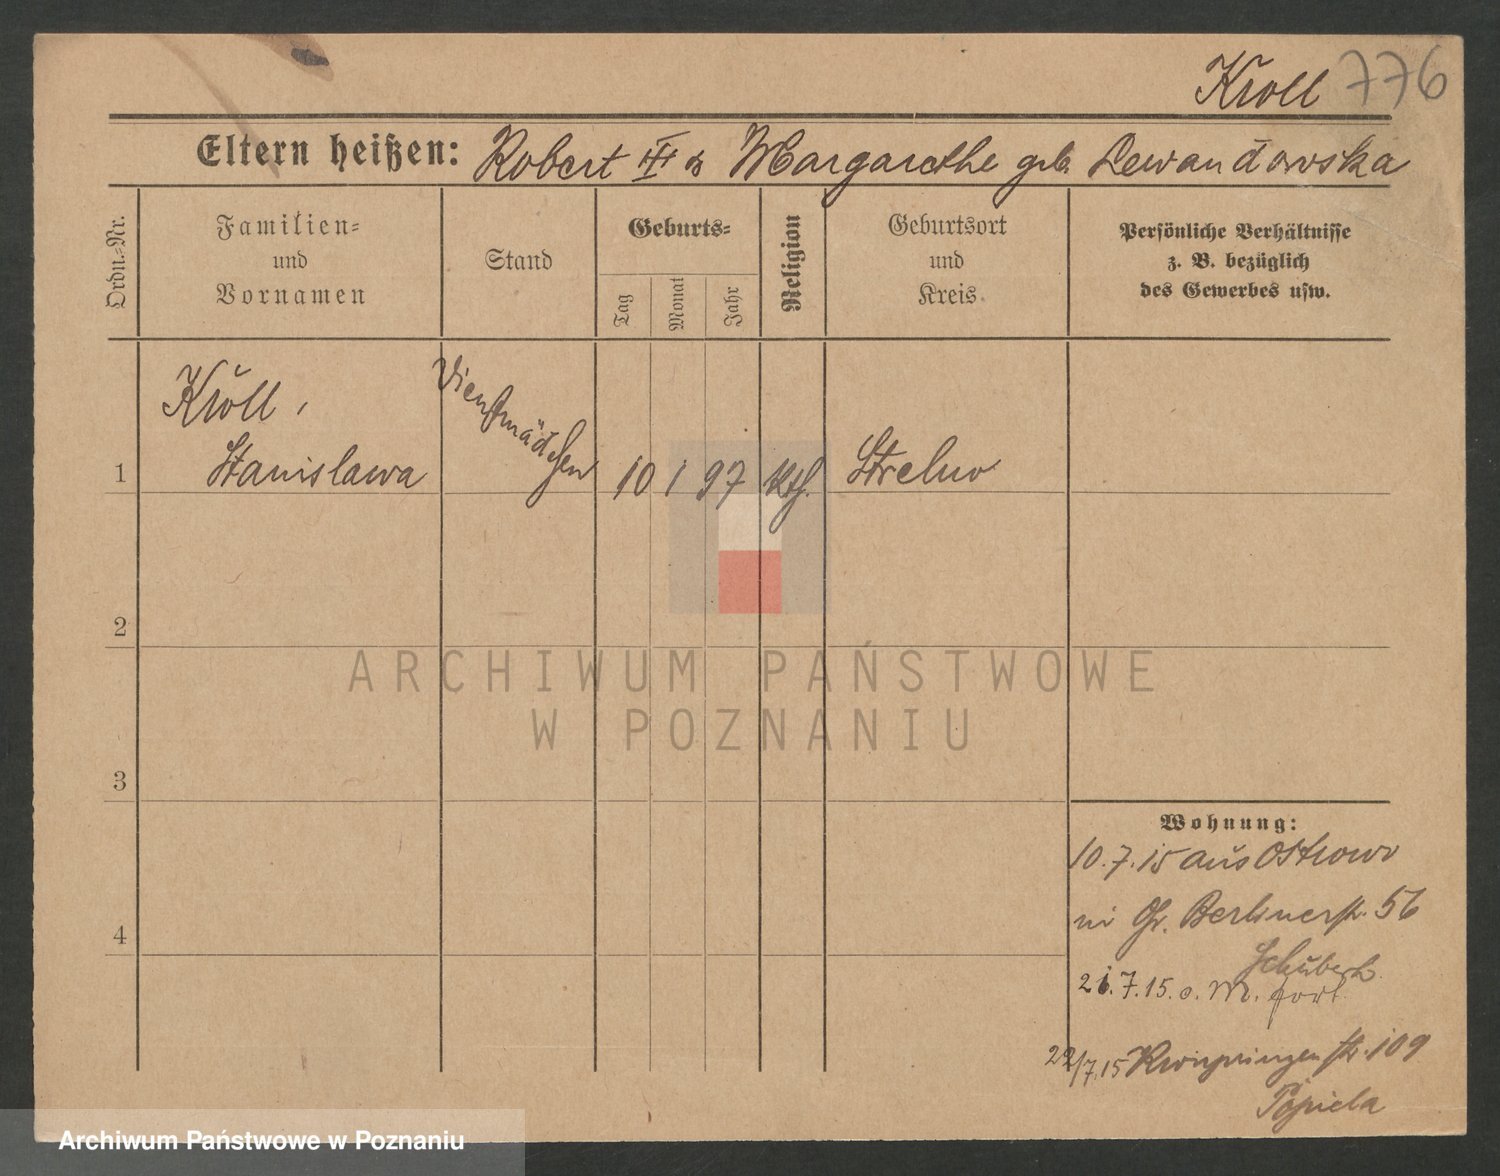 Kroll 776
Eltern heißen: Robert III & Margarethe geb. Lewandowska
Ordn.=Nr.
Familien=
und
Vornamen
Stand
Geburts=
Tag
Monat
Jahr
Religion
Geburtsort
und
Kreis
Persönliche Verhältnisse
z. B. bezüglich
des Gewerbes usw.
Kroll,
Dienstmädchen
1 Stanislawa 10 1 97 kth. Strelno
2
ARCHIWUM PAŃSTWOWE
W POZNANIU
3
Wohnung:
10.7.15 aus Ostrowo
4
Gr. Berlinerstr. 56
Schubert
21.7.15. o. M. fort.
22/7.15 Kronprinzenstr. 109
Popiela
Archiwum Państwowe w Poznaniu